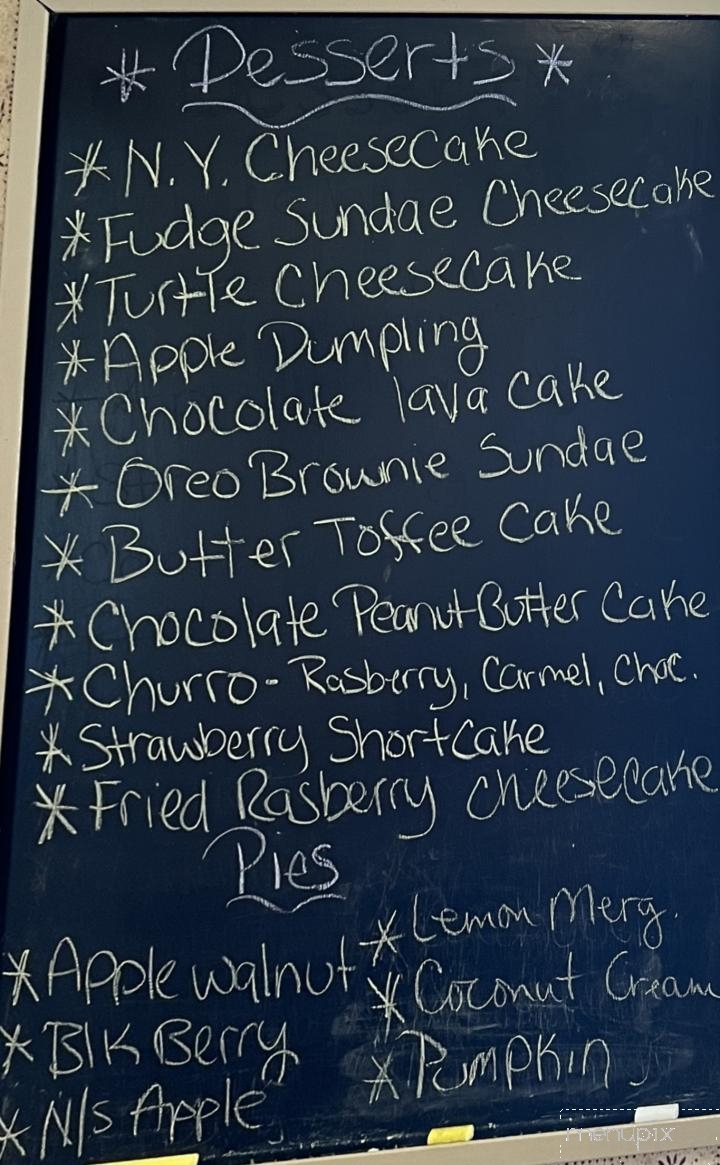 * Desserts *
* N.Y. Cheesecake
* Fudge Sundae Cheesecake
* Turtle Cheesecake
* Apple Dumpling
* Chocolate lava Cake
* Oreo Brownie Sundae
* Butter Toffee Cake
* Chocolate Peanut Butter Cake
* Churro - Rasberry, Carmel, Choc.
* Strawberry Shortcake
* Fried Rasberry Cheesecake
Pies
* Apple walnut
* Blk Berry
* N/s Apple
* Lemon Merg.
* Coconut Cream
* Pumpkin
menupix